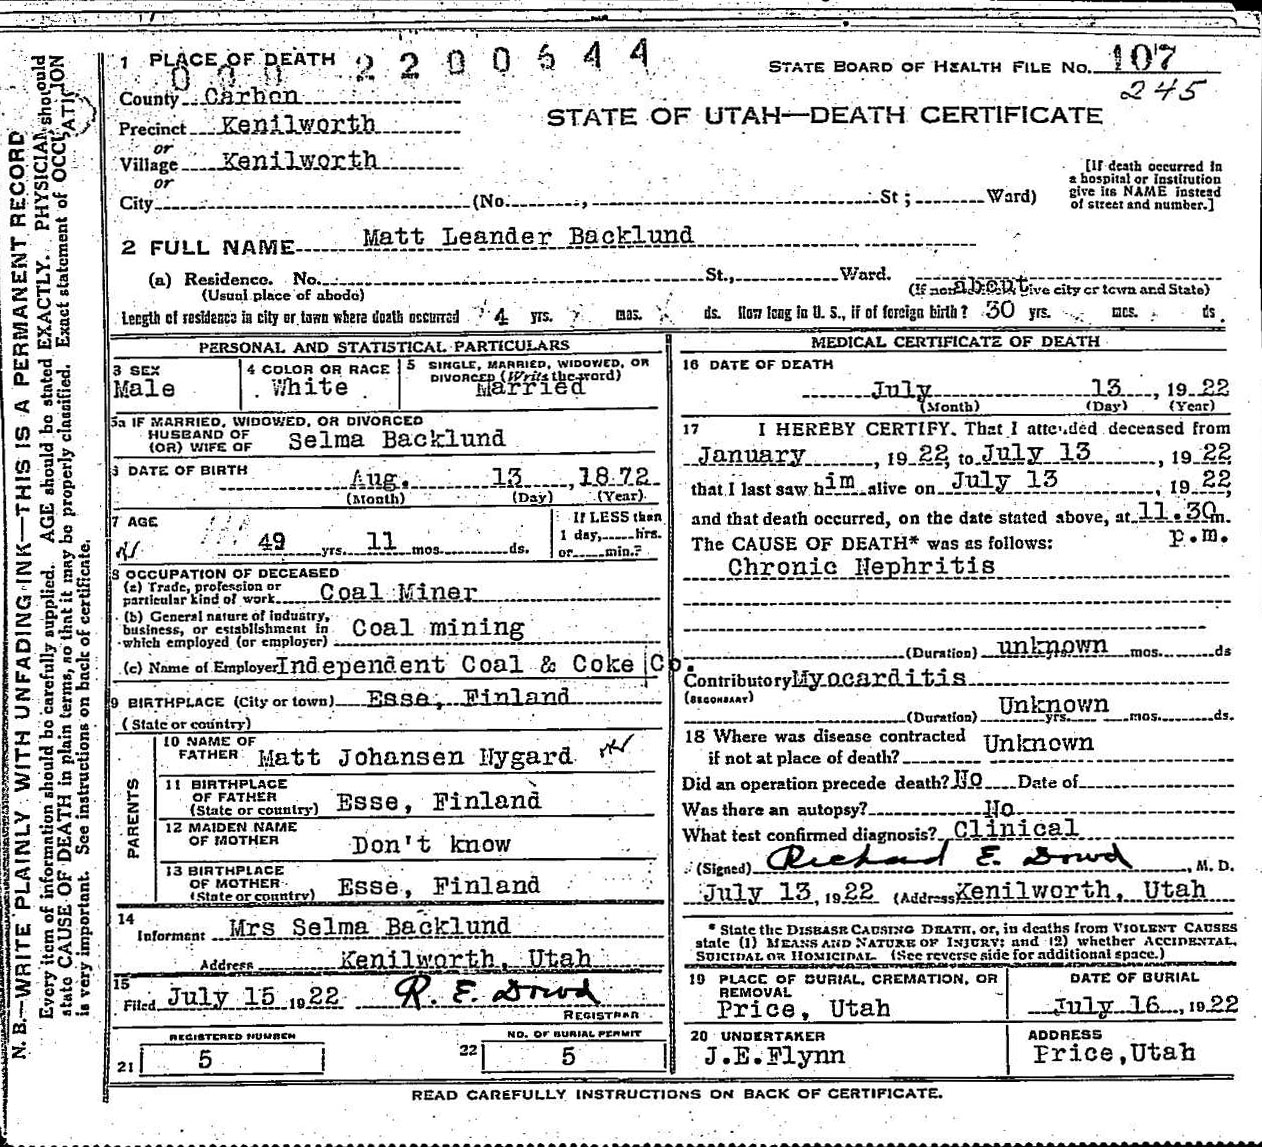 1 PLACE OF DEATH 2200644
000
STATE BOARD OF HEALTH FILE No. 107
245
County Carbon
STATE OF UTAH—DEATH CERTIFICATE
Precinct Kenilworth
or
Village Kenilworth
or
City (No. , St ; Ward)
[If death occurred in a hospital or institution give its NAME instead of street and number.]
2 FULL NAME Matt Leander Backlund
(a) Residence. No. St., Ward.
(Usual place of abode)
about
(If ive city or town and State)
Length of residence in city or town where death occurred 4 yrs. mos. ds. How long in U. S., if of foreign birth? 30 yrs. mos. ds.
PERSONAL AND STATISTICAL PARTICULARS
3 SEX
Male
4 COLOR OR RACE
White
5 SINGLE, MARRIED, WIDOWED, OR DIVORCED (Write the word)
Married
5a IF MARRIED, WIDOWED, OR DIVORCED
HUSBAND OF
(OR) WIFE OF Selma Backlund
6 DATE OF BIRTH
Aug. 13, 1872
(Month) (Day) (Year)
7 AGE
49 yrs. 11 mos. ds.
If LESS than
1 day, hrs.
or min.?
8 OCCUPATION OF DECEASED
(a) Trade, profession or
particular kind of work Coal Miner
(b) General nature of industry,
business, or establishment in
which employed (or employer) Coal mining
(c) Name of Employer Independent Coal & Coke Co.
9 BIRTHPLACE (City or town) Esse, Finland
(State or country)
PARENTS
10 NAME OF
FATHER Matt Johansen Nygard
11 BIRTHPLACE
OF FATHER
(State or country) Esse, Finland
12 MAIDEN NAME
OF MOTHER Don't know
13 BIRTHPLACE
OF MOTHER
(State or country) Esse, Finland
14
Informent Mrs Selma Backlund
Address Kenilworth, Utah
15
Filed July 15 1922 R. E. Dowd
REGISTRAR
REGISTERED NUMBER
21 5
NO. OF BURIAL PERMIT
22 5
MEDICAL CERTIFICATE OF DEATH
16 DATE OF DEATH
July 13, 1922
(Month) (Day) (Year)
17 I HEREBY CERTIFY. That I attended deceased from
January, 1922, to July 13, 1922,
that I last saw him alive on July 13, 1922,
and that death occurred, on the date stated above, at 11.30m.
p.m.
The CAUSE OF DEATH* was as follows:
Chronic Nephritis
(Duration) unknown mos. ds
Contributory Myocarditis
(SECONDARY)
Unknown
(Duration) yrs. mos. ds.
18 Where was disease contracted
if not at place of death? Unknown
Did an operation precede death? No Date of
Was there an autopsy? No
What test confirmed diagnosis? Clinical
(Signed) Richard E. Dowd, M. D.
July 13, 1922 (Address Kenilworth, Utah
* State the DISEASE CAUSING DEATH, or, in deaths from VIOLENT CAUSES
state (1) MEANS AND NATURE OF INJURY; and (2) whether ACCIDENTAL,
SUICIDAL OR HOMICIDAL. (See reverse side for additional space.)
19 PLACE OF BURIAL, CREMATION, OR
REMOVAL
Price, Utah
DATE OF BURIAL
July 16, 1922
20 UNDERTAKER
J.E.Flynn
ADDRESS
Price,Utah
READ CAREFULLY INSTRUCTIONS ON BACK OF CERTIFICATE.
N. B.—WRITE PLAINLY WITH UNFADING INK—THIS IS A PERMANENT RECORD
Every item of information should be carefully supplied. AGE should be stated EXACTLY. PHYSICIAN should
state CAUSE OF DEATH in plain terms, so that it may be properly classified. Exact statement of OCCUPATION
is very important. See instructions on back of certificate.